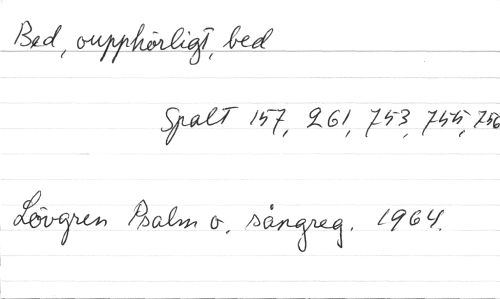 Bed, oupphörligt, bed
Spalt 157, 261, 753, 755, 756
Lövgren Psalm o. sångreg. 1964.